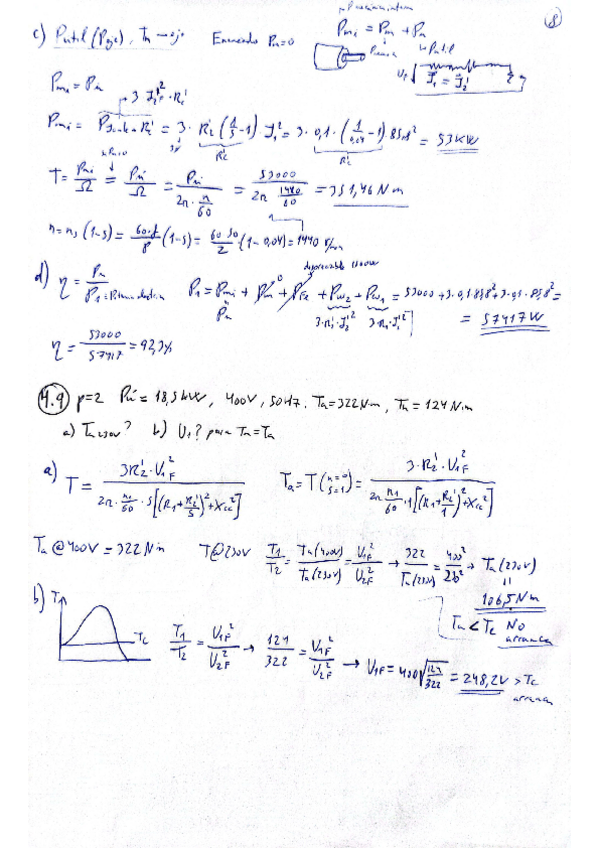 8
c) Putil (Peje), Tn → eje Enunciado Pm=0 Pmi = Pm + Pu
Putil
U1F I1 = I2'
Pmi = Pu
→ 3·I2'²·Rc'
Pmi = = 3·R2'(1/S -1)·I2'² = 3·0,1·(1/0,04 -1) 85,8² = 53KW
Rc' Rc'
Pm=0
T = Pmi/Ω = Pu/Ω = Pu/(2π·n/60) = 53000/(2π 1440/60) = 351,46 Nm
n = ns(1-s) = 60·f/p (1-s) = 60·50/2 (1-0,04) = 1440 r/min
d) η = Pu/P1 P1 = Pmi + Pm + PFe + Pcu2 + Pcu1 = 53000 + 3·0,1·85,8² + 3·0,1·85,8² =
0 despreciable
Pu 3·R2'·I2'² 3·R1·I1'² = 57417W
η = 53000/57417 = 92,3%
4.9 p=2 Pu = 18,5kW, 400V, 50Hz. Ta=322Nm, Tn = 124Nm
a) Ta 230V? b) U1? para Tn=Ta
a) T = 3R2'·V1F² / 2π·n1/60·S[(R1+R2'/S)²+Xcc²] Ta = T(n=0 S=1) = 3·R2'·V1F² / 2π n1/60·1[(R1+R2'/1)²+Xcc²]
Ta @400V = 322Nm T@230V T1/T2 = Ta(400V)/Ta(230V) = V1F²/U2F² → 322/Ta(230V) = 400²/230² → Ta(230V)
=
106,5 Nm
Ta < Tc NO
arranca
b) T Tc T1/T2 = U1F²/U2F² → 124/322 = U1F²/U2F² → U1F = 400√(124/322) = 248,2V > Tc
arranca